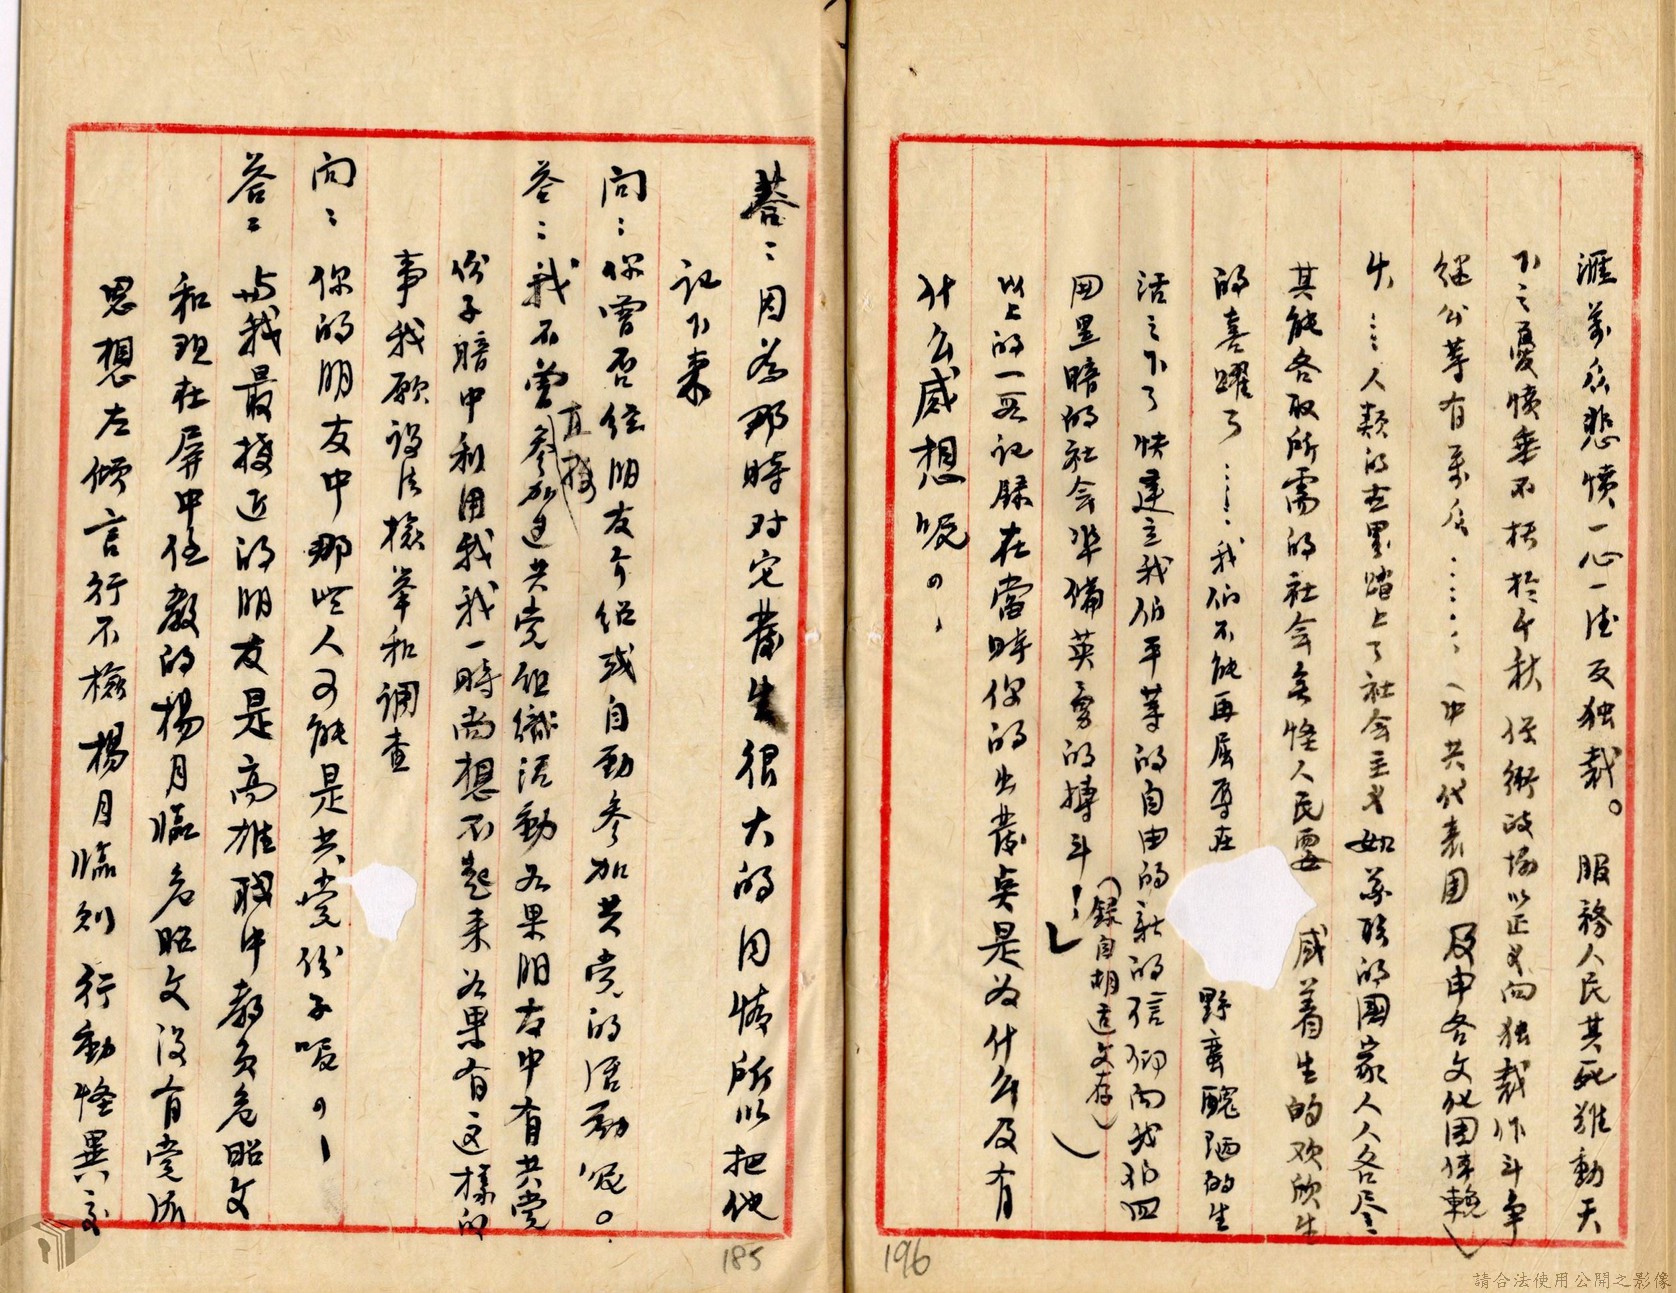 涯萬众悲憤一心一德反独裁。服務人民其死难動天
下之憂憤垂不朽於千秋 任術政協以正义向独裁作斗争
继公等有萬众……(中共代表团及申各文化团体輓)
女……人類的古墨踏上了社会主义如苏联的國家人人各尽
其能各取所需的社会無怪人民要 感着生的欢欣生
的喜躍了……我们不能再屈辱在 野蛮醜陋的生
活之下了快建立我们平等的自由的新的信仰向我们四
周黑暗的社会準備英勇的搏斗!」
(錄自胡适文存)
以上的一段記錄在當時你的出發点是为什么及有
什么感想呢?
答:因為那時对它發生很大的同情所以把他
記下來
問:你曾否經朋友介绍或自動参加共党的活動呢。
答:我不曾直接参加过共党組織活動如果朋友中有共党
份子暗中利用我我一時尚想不起来如果有这樣的
事我願設法檢舉和调查
问:你的朋友中那些人可能是共党份子呢?
答:与我最接近的朋友是高雄職中教員危昭文
和現在屏中任教的楊月臨危昭文没有党派
思想左傾言行不檢楊月臨則行動怪異交
185
196
請合法使用公開之影像